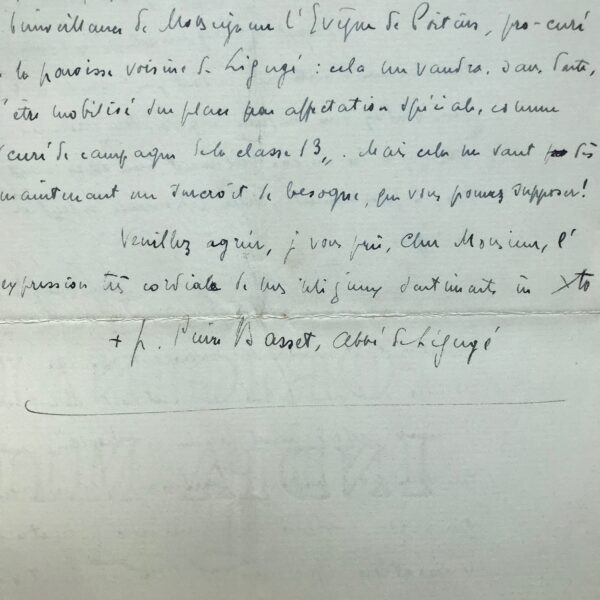 bienveillance de Monseigneur l'Evêque de Poitiers, pro-curé
la paroisse voisine de Ligugé : cela me vaudra, sans doute,
d'être mobilisé sur place par affectation spéciale, comme
curé de campagne de la classe 13„. Mais cela me vaut dès
maintenant un surcroît de besogne, que vous pouvez supposer!
Veuillez agréer, je vous prie, Cher Monsieur, l'
expression très cordiale de mes religieux sentiments in Xto
+ fr. Pierre Basset, Abbé de Ligugé